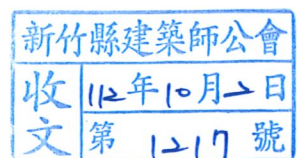 新竹縣建築師公會
收文
112年10月2日
第 1217 號